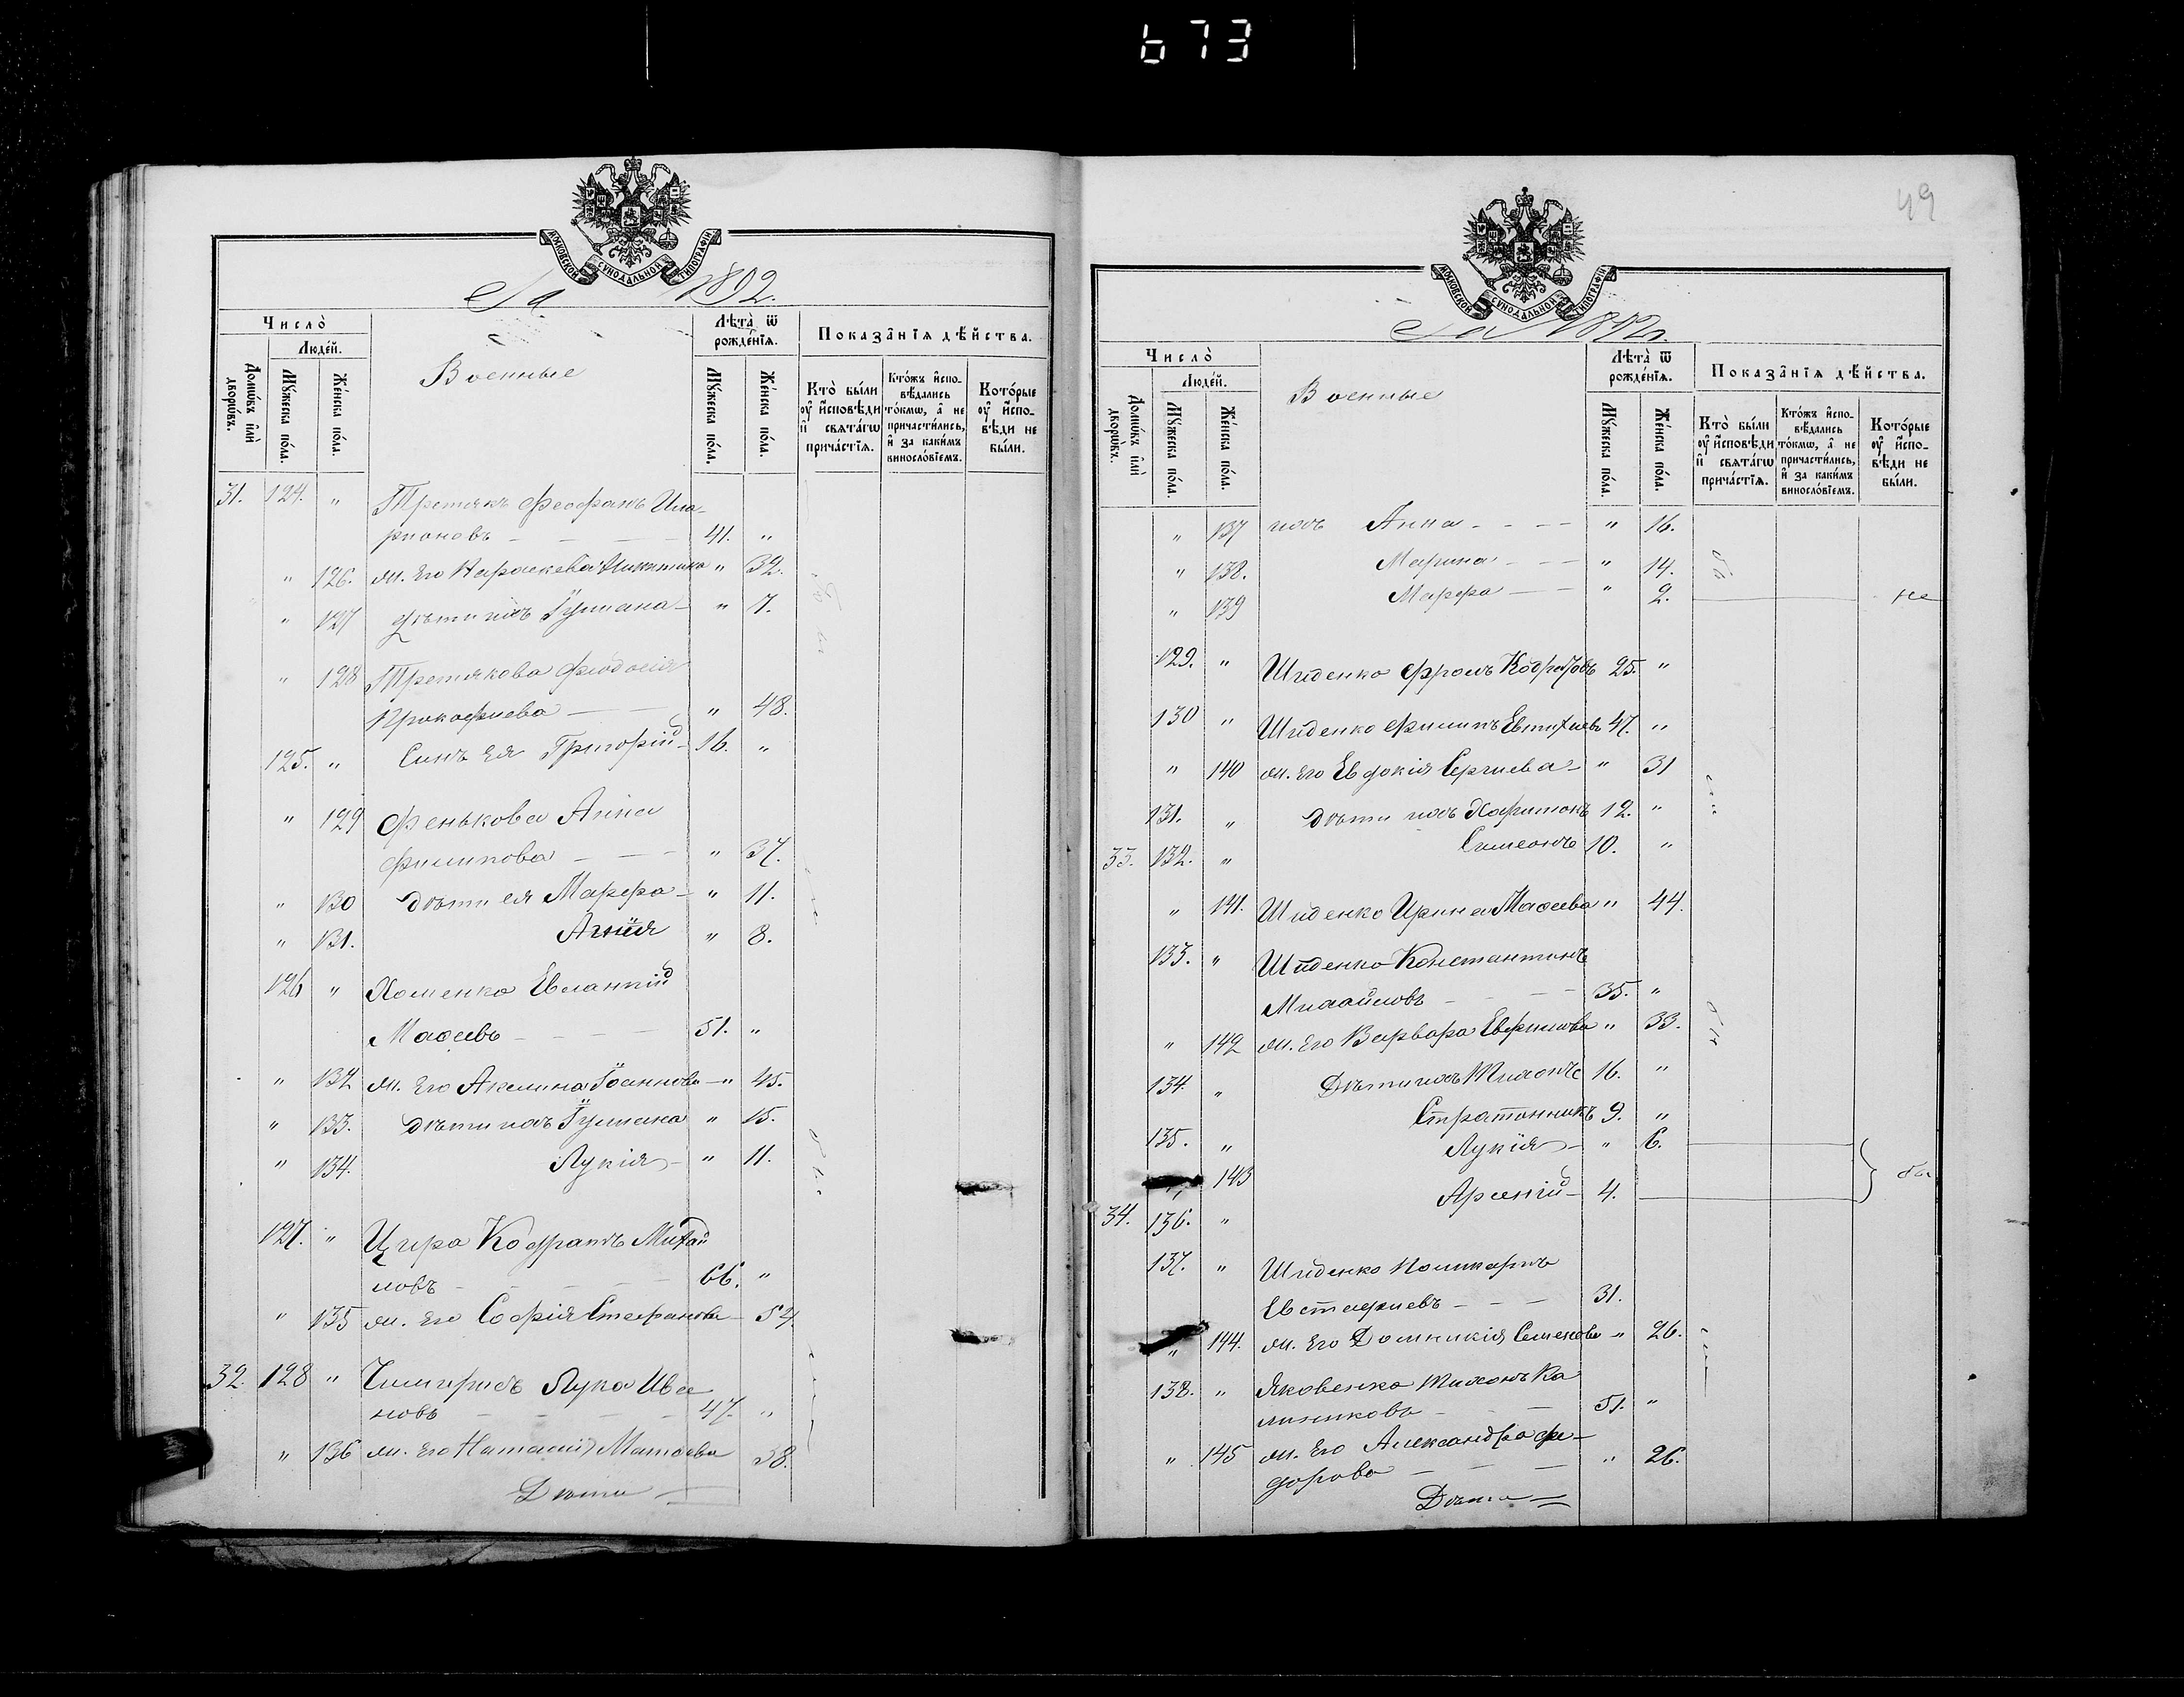 673
МОСКОВСКОЙ СѴНОДАЛЬНОЙ ТИПОГРАФІИ
За 1892.
Число̀
Людéй.
Домѡ́въ и҆лѝ дворѡ́въ.
Мꙋ́жеска по́ла.
Же́нска по́ла.
Военные
Лѣ́та ѿ рожде́нїѧ.
Мꙋ́жеска по́ла.
Же́нска по́ла.
Показа̑нїѧ дѣ́йства.
Кто̀ бы́ли оу҆ и҆сповѣди и҆ свѧта́гѡ прича́стїѧ.
Кто́жъ и҆сповѣдались то́кмѡ, а҆ не причасти́лись, и҆ за каки́мъ винослóвїемъ.
Кото́рые оу҆ и҆сповѣди не бы́ли.
31. 124. " Третякъ Феофанъ Ила-
рионовъ - - - 41. "
" 126. ж. его Параскева Никитина " 32.
" 127 дѣти ихъ Іуліана - " 7.
" 128 Третякова Феодосія
Прокофиева - " 48.
125. " Синъ ея Григорій - 16. "
" 129 Фенькова Анна
Филипова - - - " 37.
" 130 дѣти ея Марфа - " 11.
" 131. Агнія " 8.
126 " Хоменко Евлампій
Моѳеевъ - - - 51. "
" 132 ж. его Акилина Іоаннова - " 45.
" 133. дѣти ихъ Іуліана " 15.
" 134. Лукія - " 11.
127. " Цира Кодратъ Михай
ловъ - - - 66. "
" 135 ж. его Софія Стефанова - 54.
32. 128 " Чимирисъ Лука Ива
новъ - - - 47. "
" 136 ж. его Наталия Матвѣева 38.
Дѣти
49
МОСКОВСКОЙ СѴНОДАЛЬНОЙ ТИПОГРАФІИ
За 1892.
Число̀
Людéй.
Домѡ́въ и҆лѝ дворѡ́въ.
Мꙋ́жеска по́ла.
Же́нска по́ла.
Военные
Лѣ́та ѿ рожде́нїѧ.
Мꙋ́жеска по́ла.
Же́нска по́ла.
Показа̑нїѧ дѣ́йства.
Кто̀ бы́ли оу҆ и҆сповѣди и҆ свѧта́гѡ прича́стїѧ.
Кто́жъ и҆сповѣдались то́кмѡ, а҆ не причасти́лись, и҆ за каки́мъ винослóвїемъ.
Кото́рые оу҆ и҆сповѣди не бы́ли.
" 137 ихъ Анна - - - " 16.
" 138. Марина - - " 14.
" 139 Марфа - - " 2. не
129. " Шиденко Фролъ Кодратовъ 25. "
130 " Шиденко Филипъ Евтихиевъ 47. "
" 140 ж. его Евдокія Сергиева - " 31
131. " дѣти ихъ Харитонъ 12. "
33. 132. " Симеонъ 10. "
" 141. Шиденко Ирина Моѳеева " 44.
133. " Шиденко Константинъ
Михайловъ - - - 35. "
" 142 ж. его Варвара Ефимова " 33.
134. " Дѣти ихъ Тихонъ 16. "
135. " Стратоникъ 9. "
143 Лукія - " 6.
34. 136. " Арсеній - 4.
137. " Шиденко Поликарпъ
Евстафиевъ - - - 31.
" 144. ж. его Домникія Семенова " 26.
138. " Яковенко Тихонъ Ка
линиковъ - - 51. "
" 145 ж. его Александра Фе-
дорова - - - " 26.
Дѣти